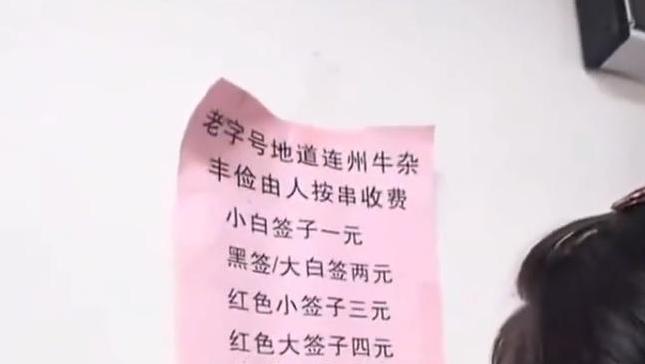 老字号地道连州牛杂
丰俭由人按串收费
小白签子一元
黑签/大白签两元
红色小签子三元
红色大签子四元